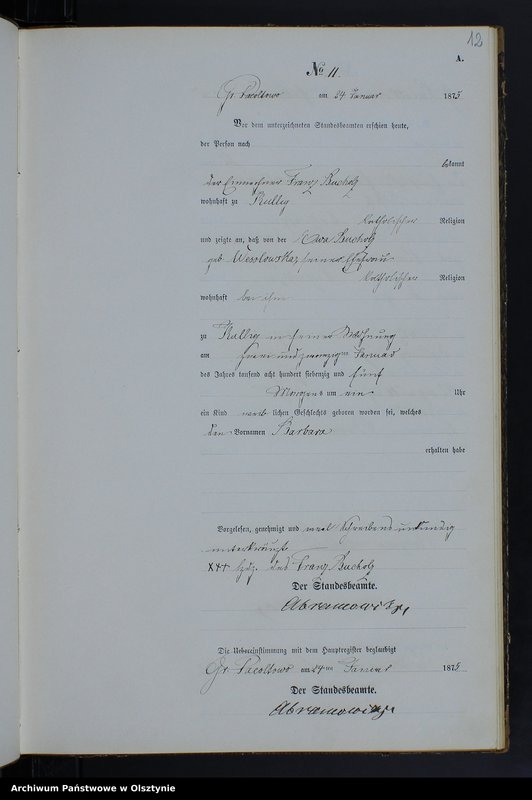 12
A.
No 11.
Gr. Pacoltowo am 24 Januar 1875
Vor dem unterzeichneten Standesbeamten erschien heute,
der Person nach
bekannt
der Einwohner Franz Bucholz
wohnhaft zu Kullig
katholischer Religion
und zeigte an, daß von der Eva Bucholz
geb. Wesolowska, seiner Ehefrau
katholischer Religion
wohnhaft bei ihm
zu Kullig in seiner Wohnung
am zwanzigten Januar
des Jahres tausend acht hundert siebenzig und fünf
Morgens um ein Uhr
ein Kind weib lichen Geschlechts geboren worden sei, welches
den Vornamen Barbara
erhalten habe
Vorgelesen, genehmigt und weil Schreibens unkundig
unterkreuzt
XXX hdz. des Franz Bucholz
Der Standesbeamte.
Abramowski
Die Uebereinstimmung mit dem Hauptregister beglaubigt
Gr. Pacoltowo am 24ten Januar 1875
Der Standesbeamte.
Abramowski
Archiwum Państwowe w Olsztynie